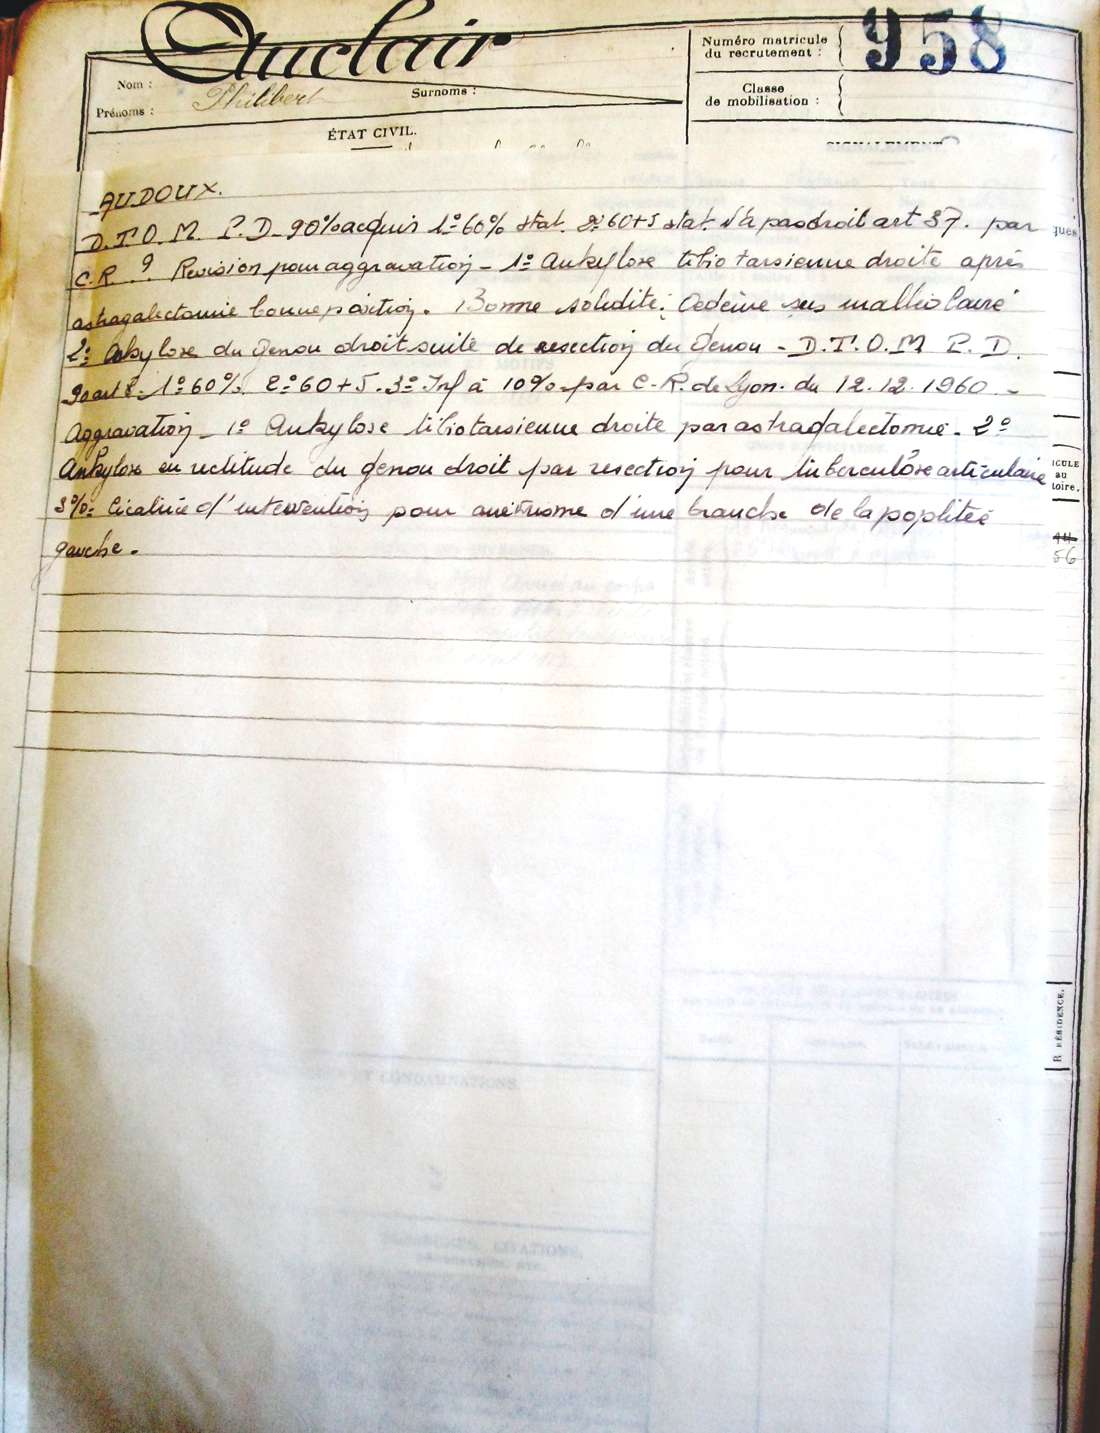 Nom : Auclair
Numéro matricule du recrutement : 958
Prénoms : Philibert Surnoms :
Classe de mobilisation :
ÉTAT CIVIL.
SIGNALEMENT
AUDOUX.
D.T.O.M. P.D. 90% acquis 1º 60% stat. 2º 60+5 stat. N'a pas droit art 37. par
C.R. ? Revision pour aggravation - 1º Ankylose tibio tarsienne droite après
astragalectomie bonne position. Bonne solidité; Oedeme sus malléolaire
2º Ankylose du genou droit suite de resection du Genou - D.T.O.M P.D.
1º 60%. 2º 60+5. 3º Inf à 10% par C.R. de Lyon. du 12.12.1960 -
Aggravation - 1º Ankylose tibiotarsienne droite par astragalectomie - 2º
Ankylose en rectitude du genou droit par resection pour tuberculose articulaire
3º/º: Cicatrice d'intervention pour anévrisme d'une branche de la poplitée
gauche.
qués
ICULE
au
toire.
56
R RÉSIDENCE.
ET CONDAMNATIONS.